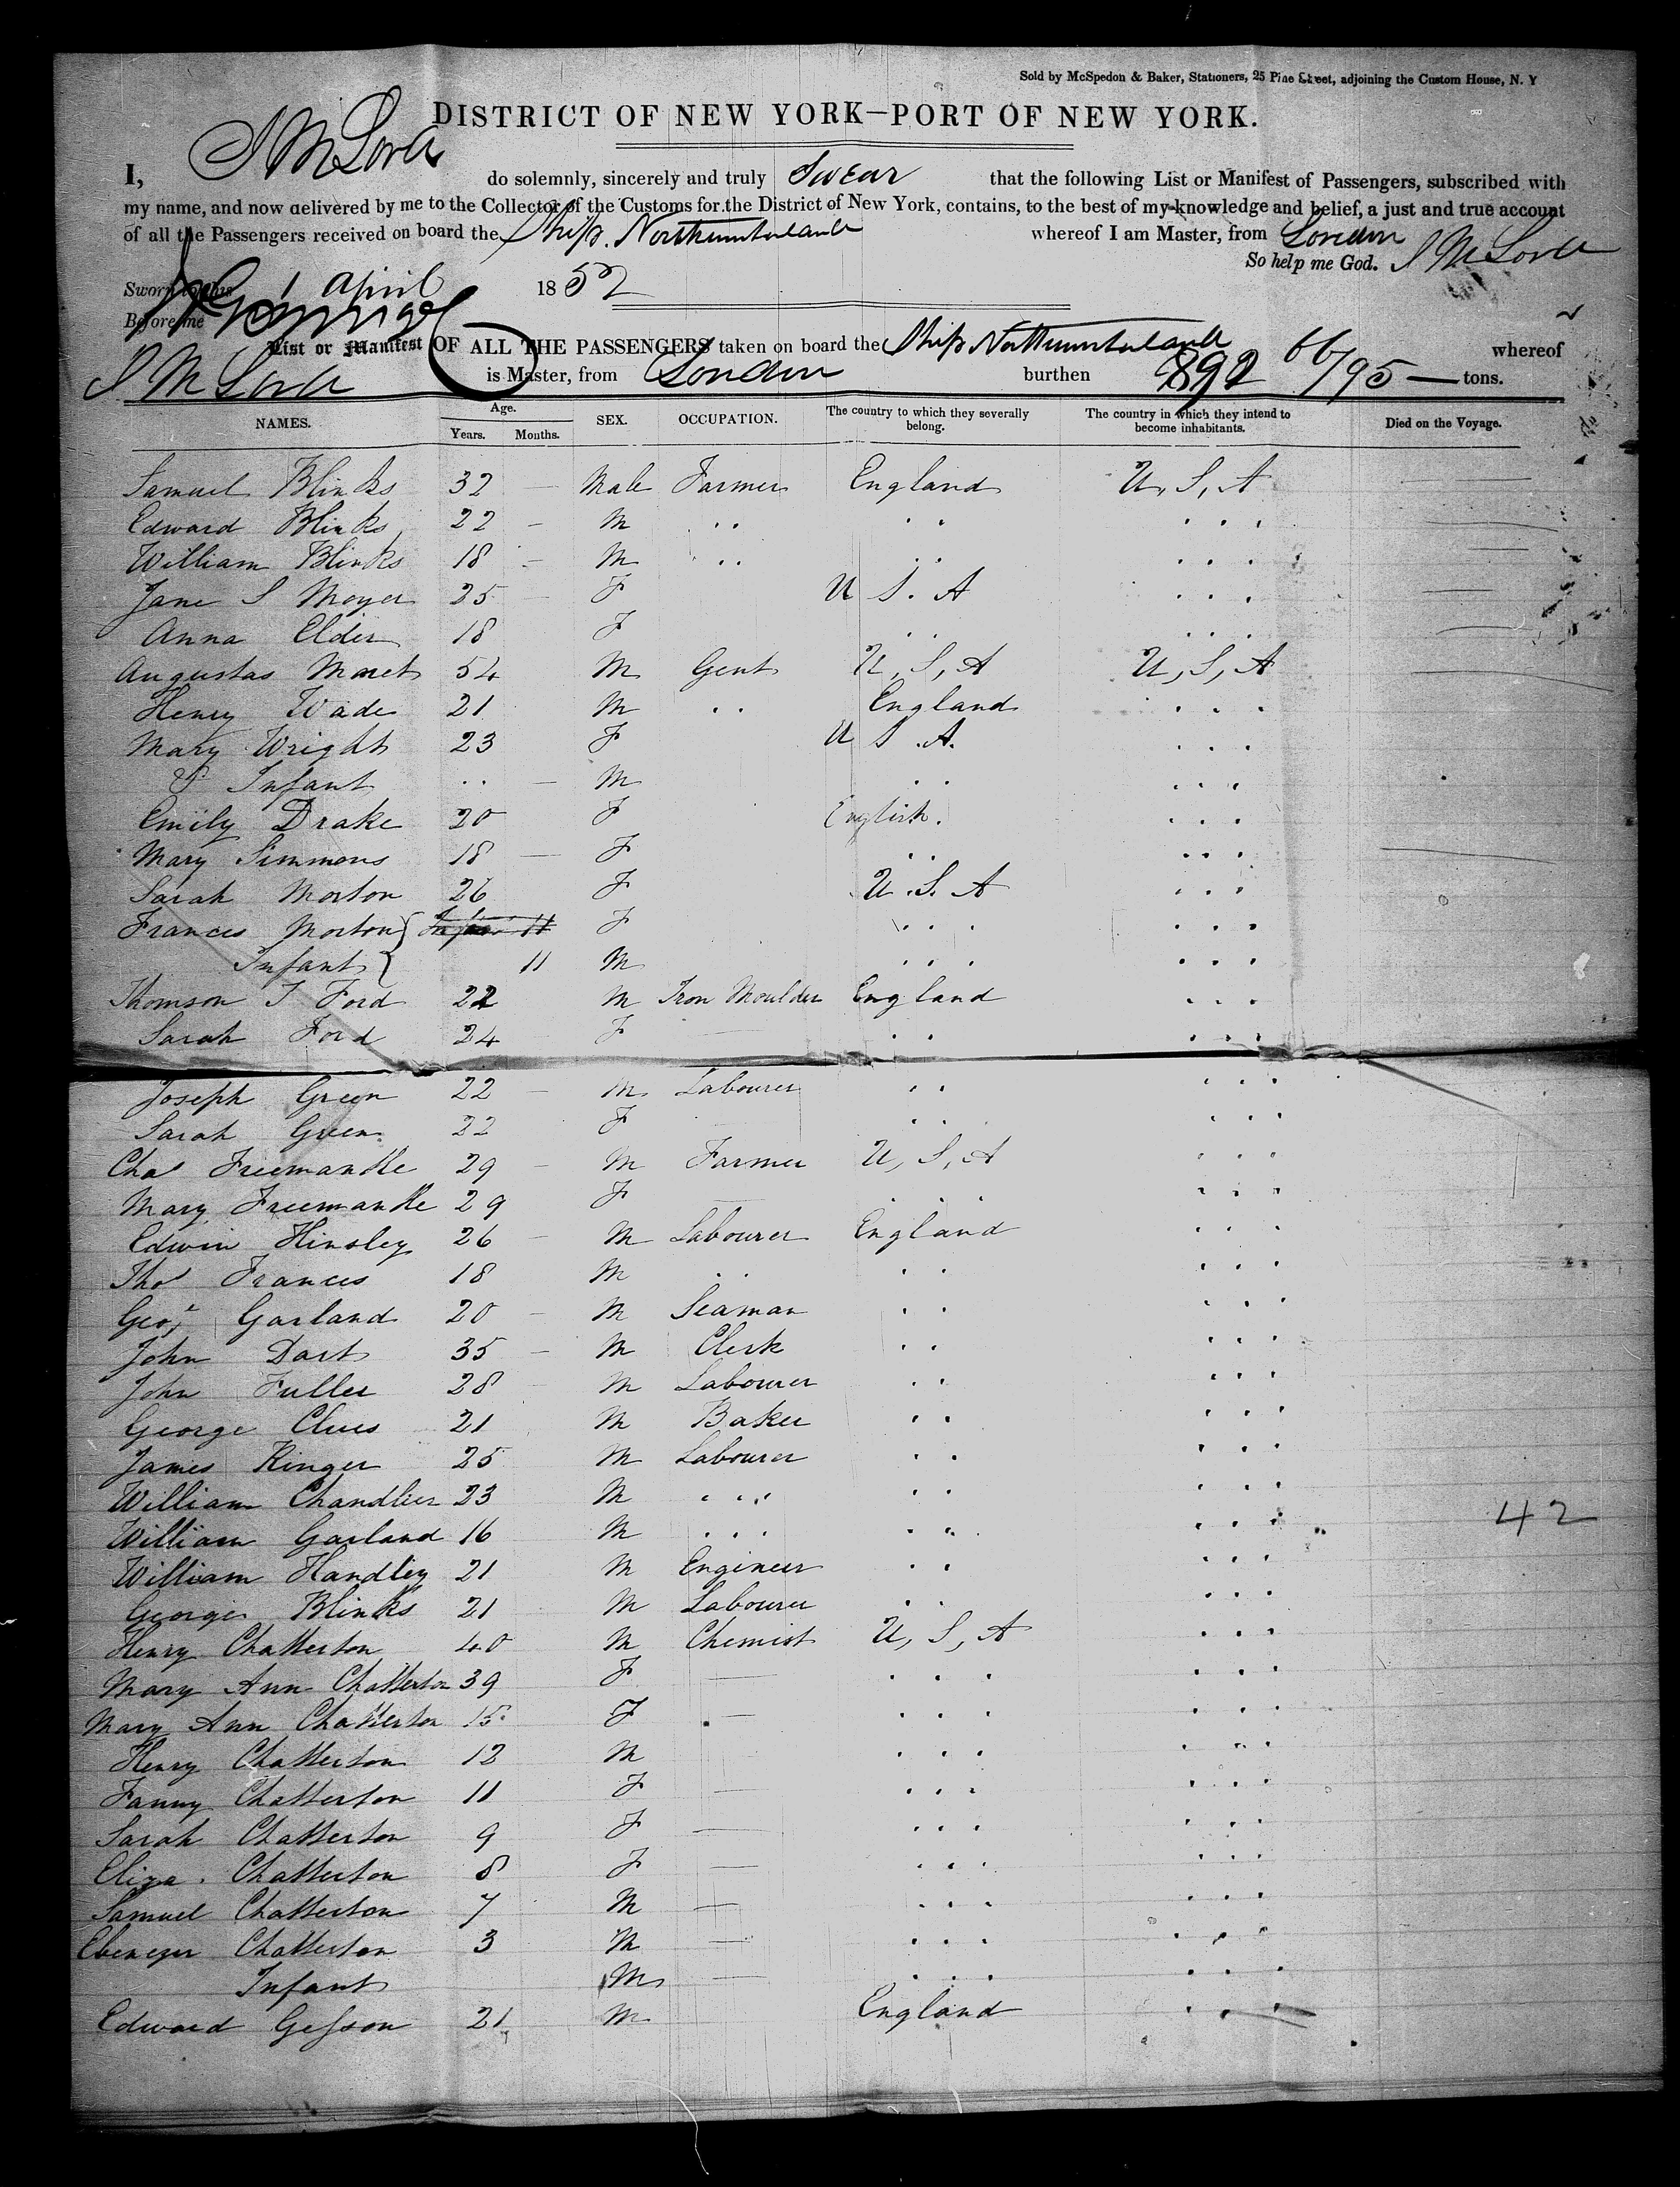 Sold by McSpedon & Baker, Stationers, 25 Pine Street, adjoining the Custom House, N. Y
DISTRICT OF NEW YORK—PORT OF NEW YORK.
I, J M Lord do solemnly, sincerely and truly Swear that the following List or Manifest of Passengers, subscribed with
my name, and now delivered by me to the Collector of the Customs for the District of New York, contains, to the best of my knowledge and belief, a just and true account
of all the Passengers received on board the Ship Northumberland whereof I am Master, from London
So help me God. J M Lord
Sworn to this 1 April 1852
Before me
List or Manifest OF ALL THE PASSENGERS taken on board the Ship Northumberland whereof
J M Lord is Master, from London burthen 892 66/95 — tons.
NAMES. Age. Years. Months. SEX. OCCUPATION. The country to which they severally belong. The country in which they intend to become inhabitants. Died on the Voyage.
Samuel Blinks 32 — Male Farmer England U, S, A
Edward Blinks 22 — M " " " " " "
William Blinks 18 — M " " " " " " "
Jane S Moyer 25 — F U S. A " " "
Anna Elder 18 F " " " " "
Augustas Moret 54 M Gent U, S, A U, S, A
Henry Wade 21 M " " England " " "
Mary Wright 23 F U S. A. " " "
& Infant " " — M " " " " "
Emily Drake 20 F English. " " "
Mary Simmons 18 — F " " " " "
Sarah Morton 26 F U. S. A " " "
Frances Morton } Infant 11 F " " " " " "
Infant } 11 M " " " " " "
Thomson T Ford 22 M Iron Moulder England " " "
Sarah Ford 24 F — " " " " "
Joseph Green 22 — M Labourer " " " " "
Sarah Green 22 F " " " " "
Chas Freemantle 29 — M Farmer U, S, A " " "
Mary Freemantle 29 F — " " " " " "
Edwin Hinsley 26 — M Labourer England " " "
Thos Frances 18 M " " " " " " "
Geo, Garland 20 — M Seaman " " " " "
John Dart 35 — M Clerk " " " " "
John Fuller 28 M Labourer " " " " "
George Clues 21 M Baker " " " " "
James Ringer 25 M Labourer " " " " "
William Chandlier 23 M " " " " " " " "
William Garland 16 M " " " " " " " " 42
William Handley 21 M Engineer " " " " "
George Blinks 21 M Labourer " " " " "
Henry Chatterton 40 M Chemist U, S, A " " "
Mary Ann Chatterton 39 F — " " " " " "
Mary Ann Chatterton 15 F — " " " " " "
Henry Chatterton 12 M " " " " " "
Fanny Chatterton 11 F — " " " " " "
Sarah Chatterton 9 F — " " " " " "
Eliza Chatterton 8 F — " " " " " "
Samuel Chatterton 7 M — " " " " " "
Ebenezer Chatterton 3 M — " " " " " "
Infant M — " " " " " "
Edward Gesson 21 M England " " "